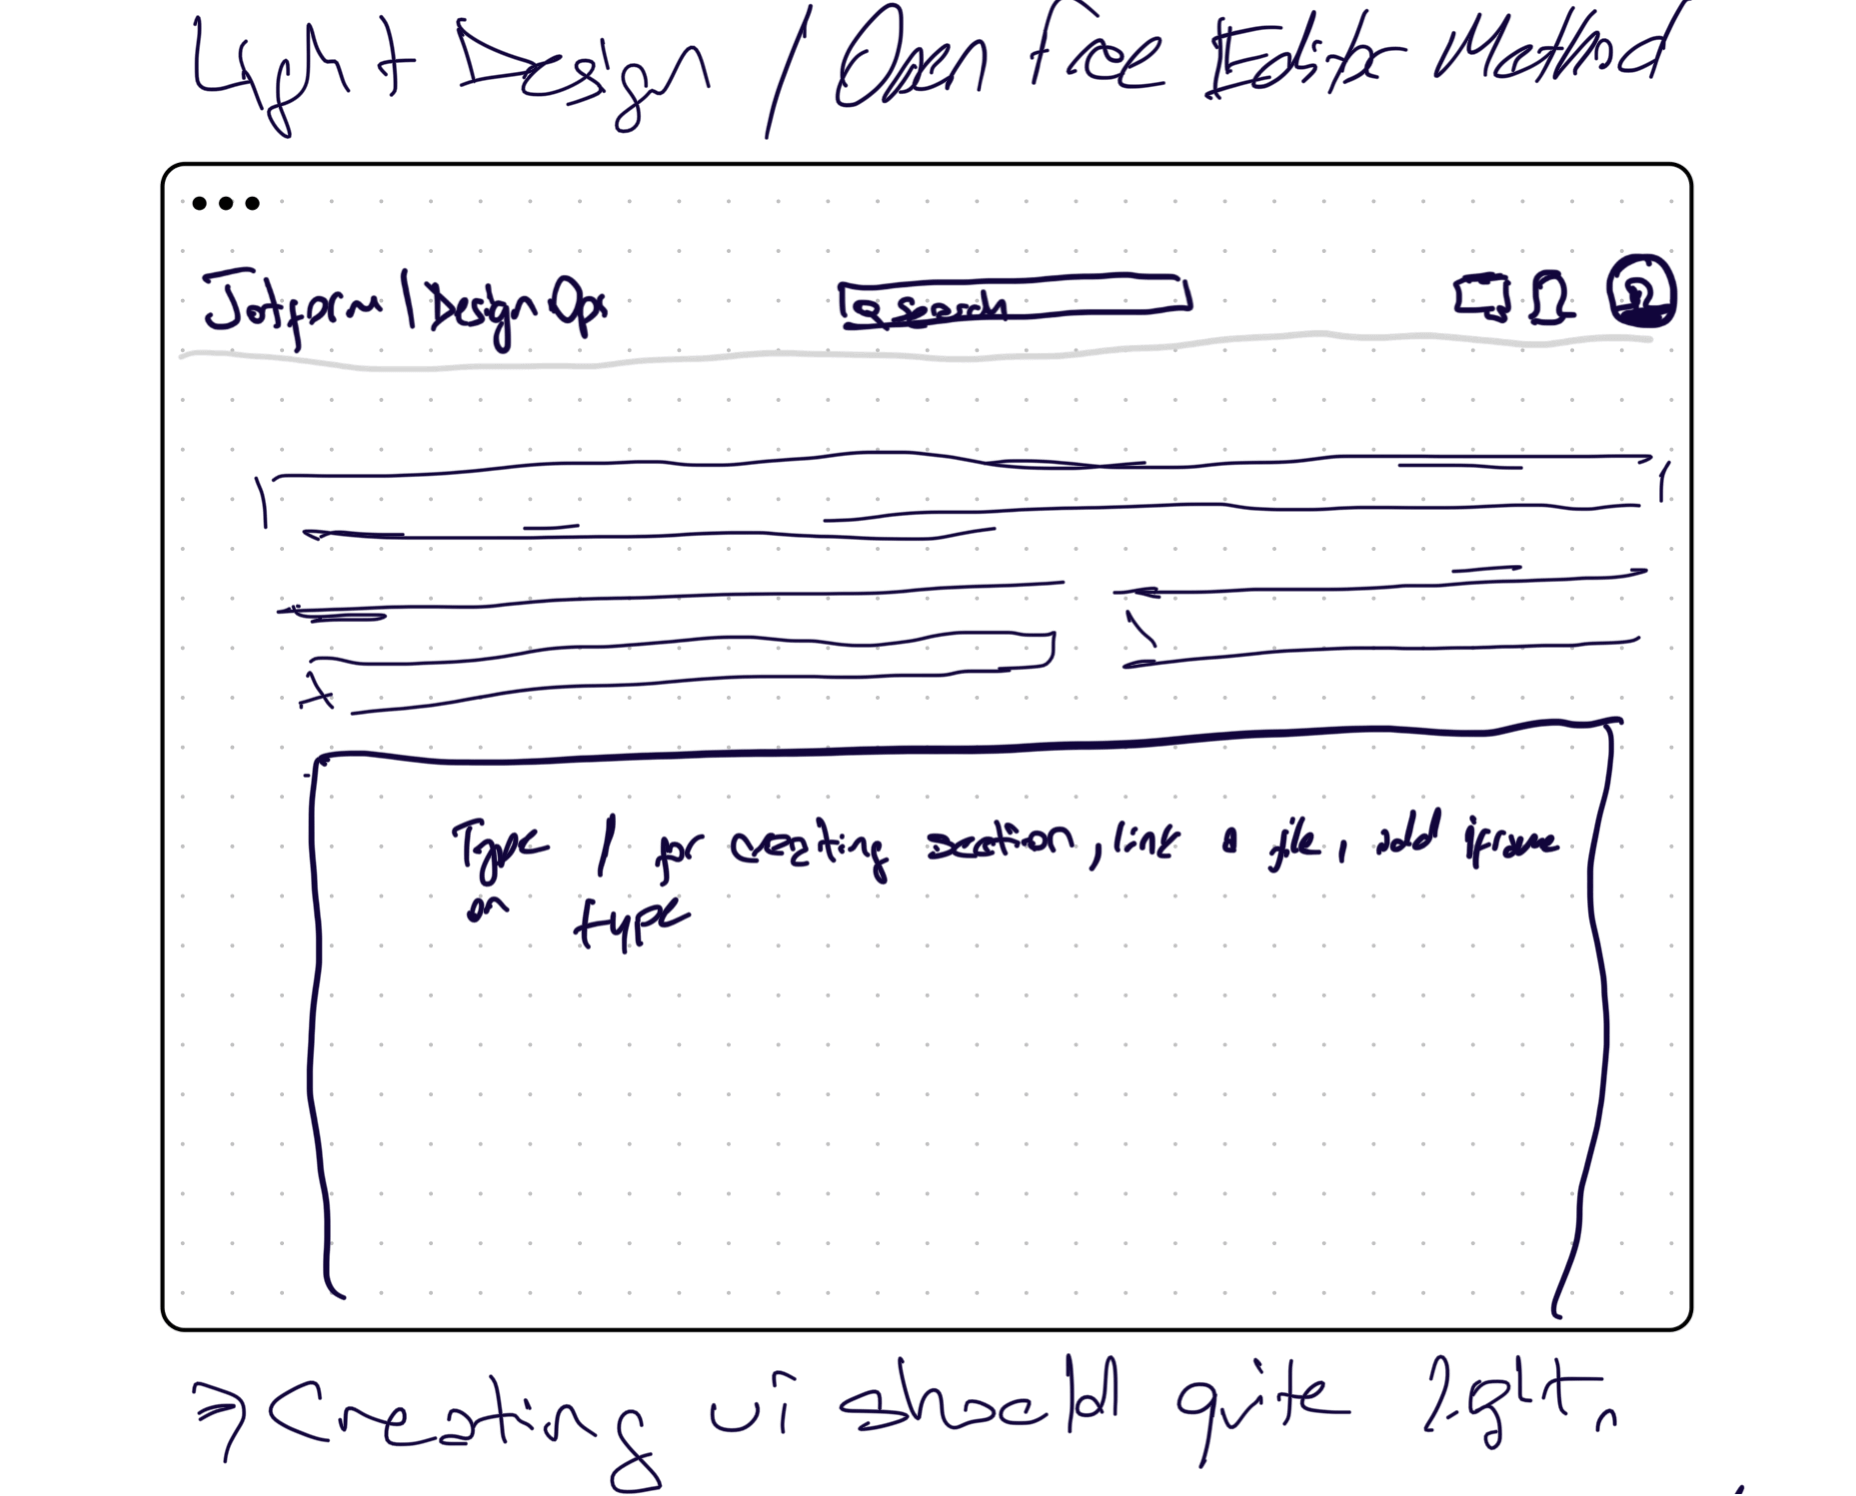 Light Design / Open Free Editor Method
Jotform / DesignOps
search
Type / for creating section, link a file, add iframe
on type
→ Creating ui should quite light,